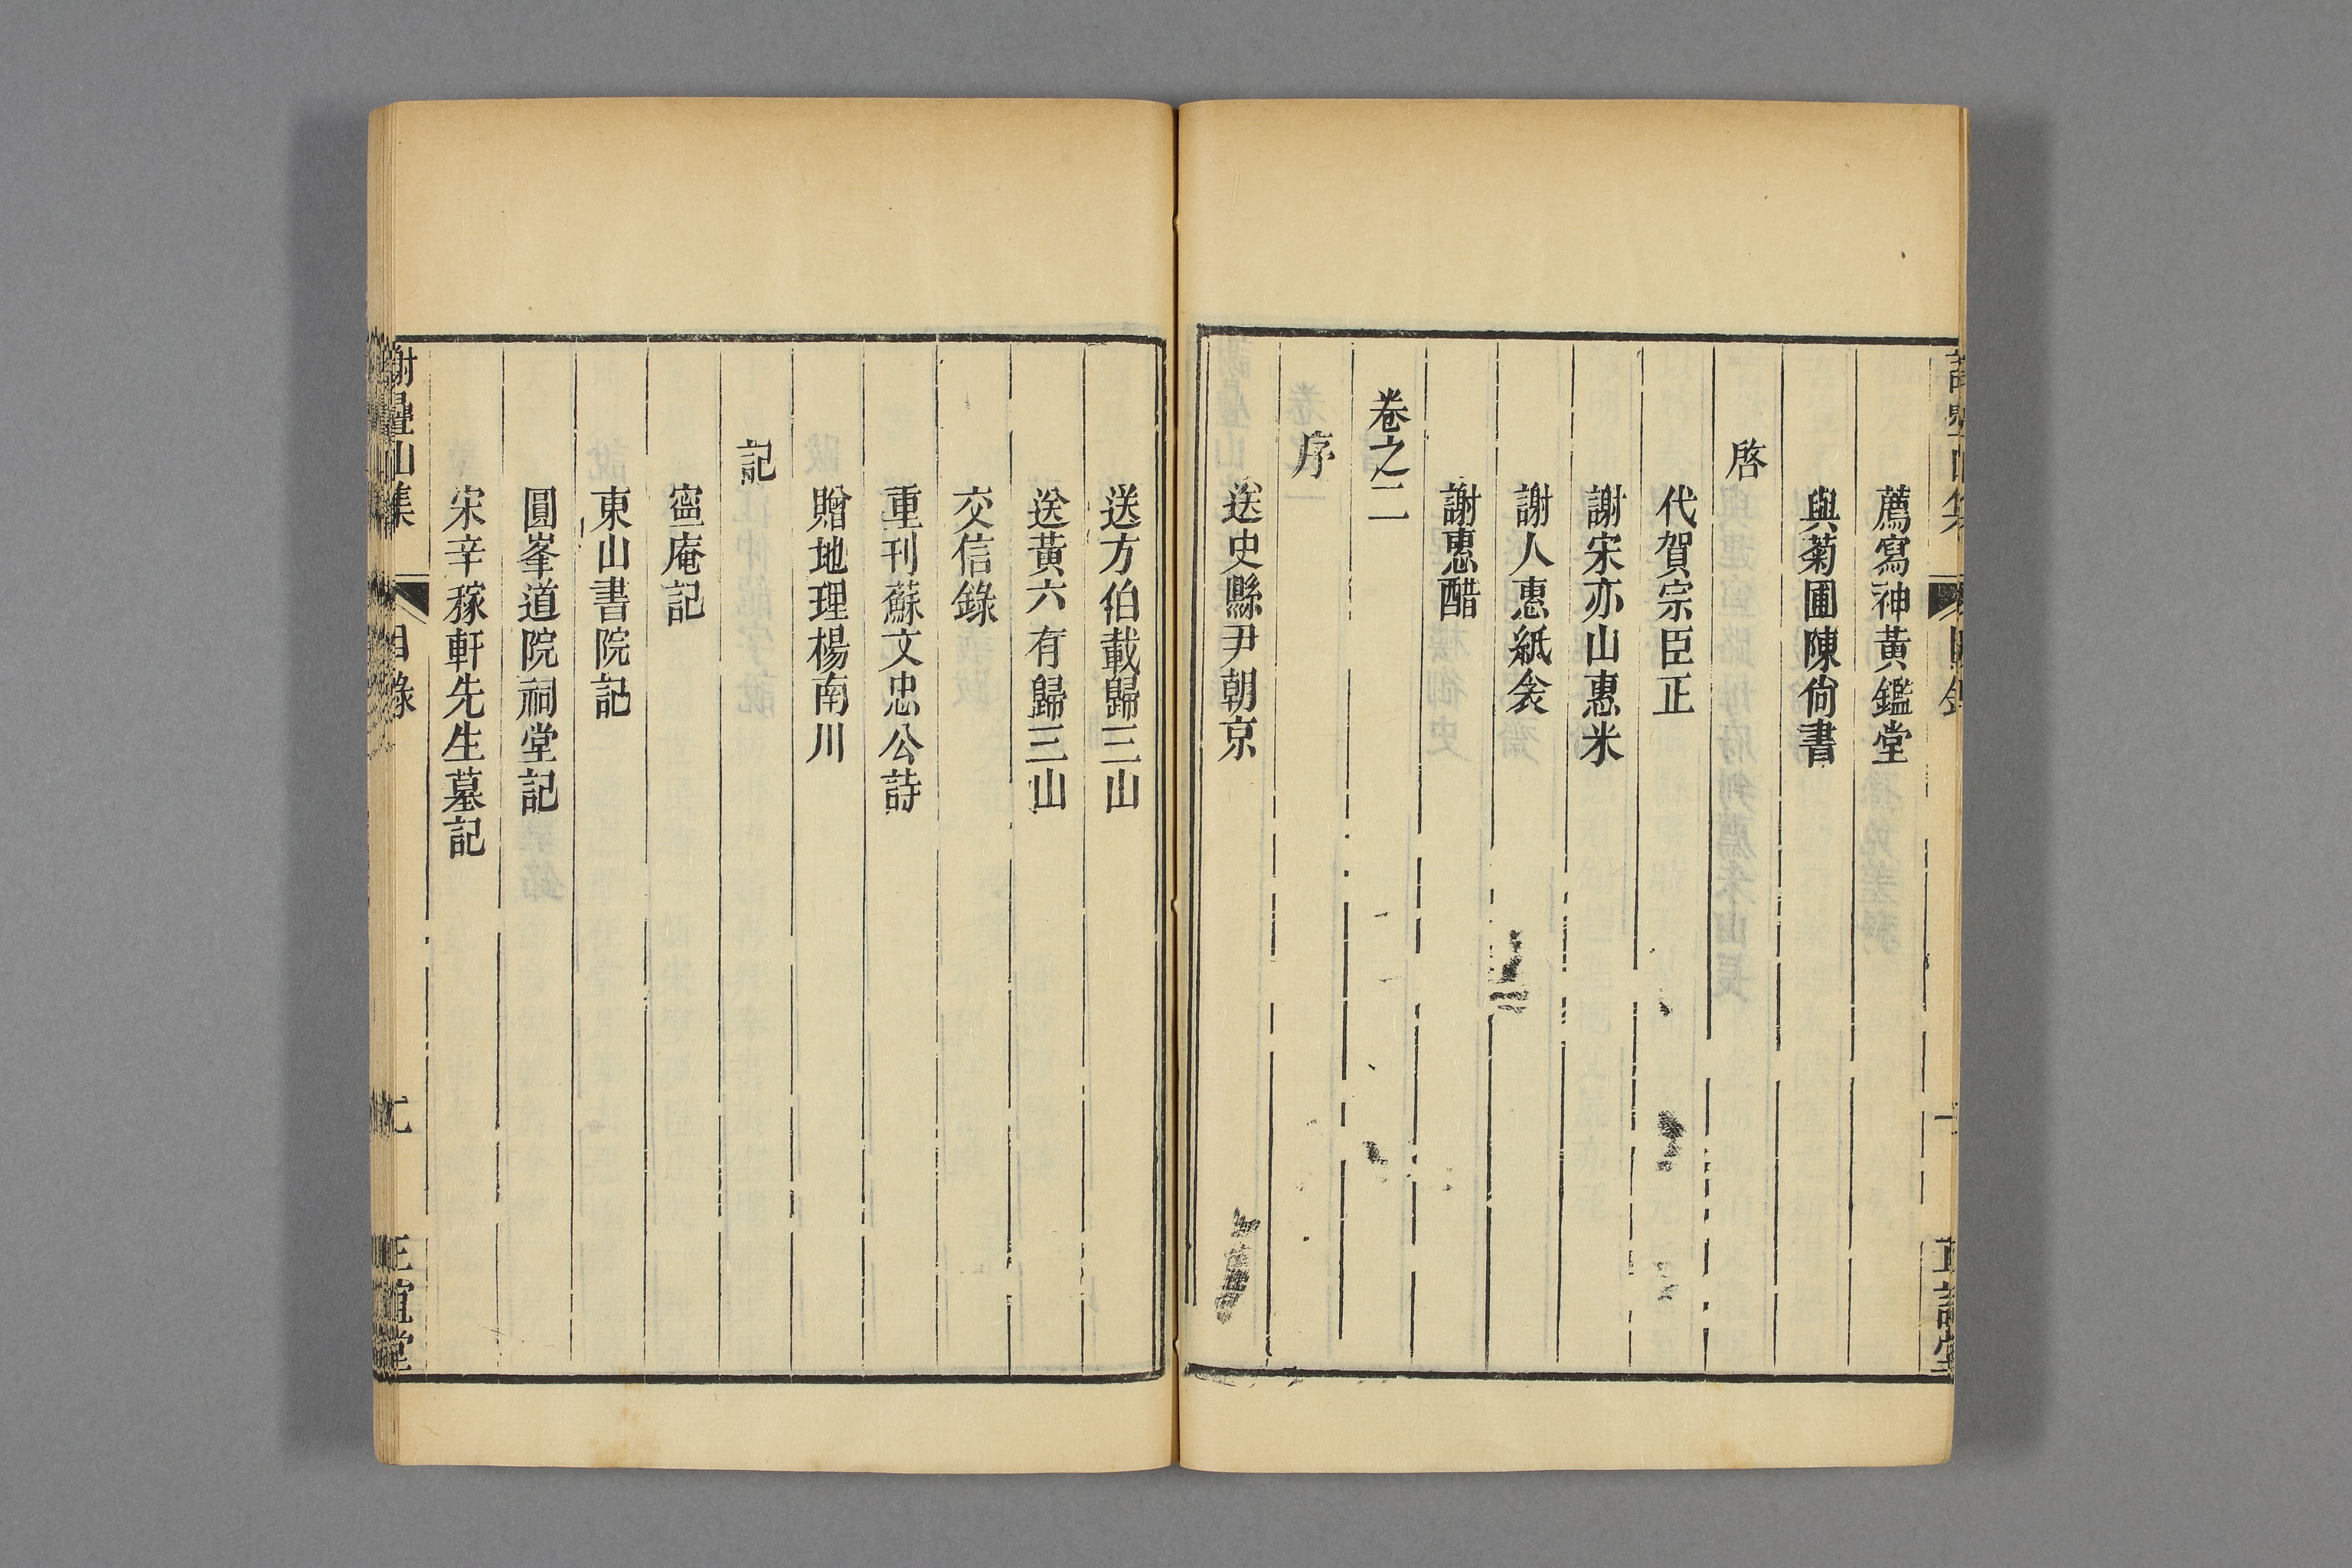 薦寫神黃鑑堂
與菊圃陳尙書
啓
代賀宗臣正
謝宋亦山惠米
謝人惠紙衾
謝惠醋
卷之二
序
送史縣尹朝京
送方伯載歸三山
送黃六有歸三山
交信錄
重刊蘇文忠公詩
贈地理楊南川
記
寍庵記
東山書院記
圓峯道院祠堂記
宋辛稼軒先生墓記
謝疊山集 目錄 二 正誼堂